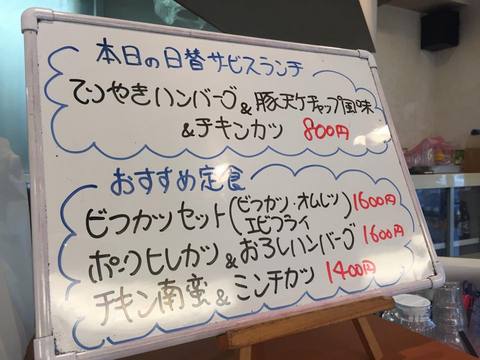 本日の日替サービスランチ
てりやきハンバーグ&豚天ケチャップ風味
&チキンカツ 800円
おすすめ定食
ビフカツセット(ビフカツ・オムレツ エビフライ) 1600円
ポークヒレカツ&おろしハンバーグ 1600円
チキン南蛮&ミンチカツ 1400円